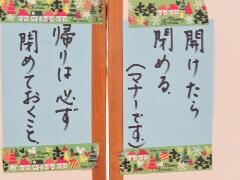 開けたら
閉める
(マナーです。)
帰りは必ず
閉めておくこと